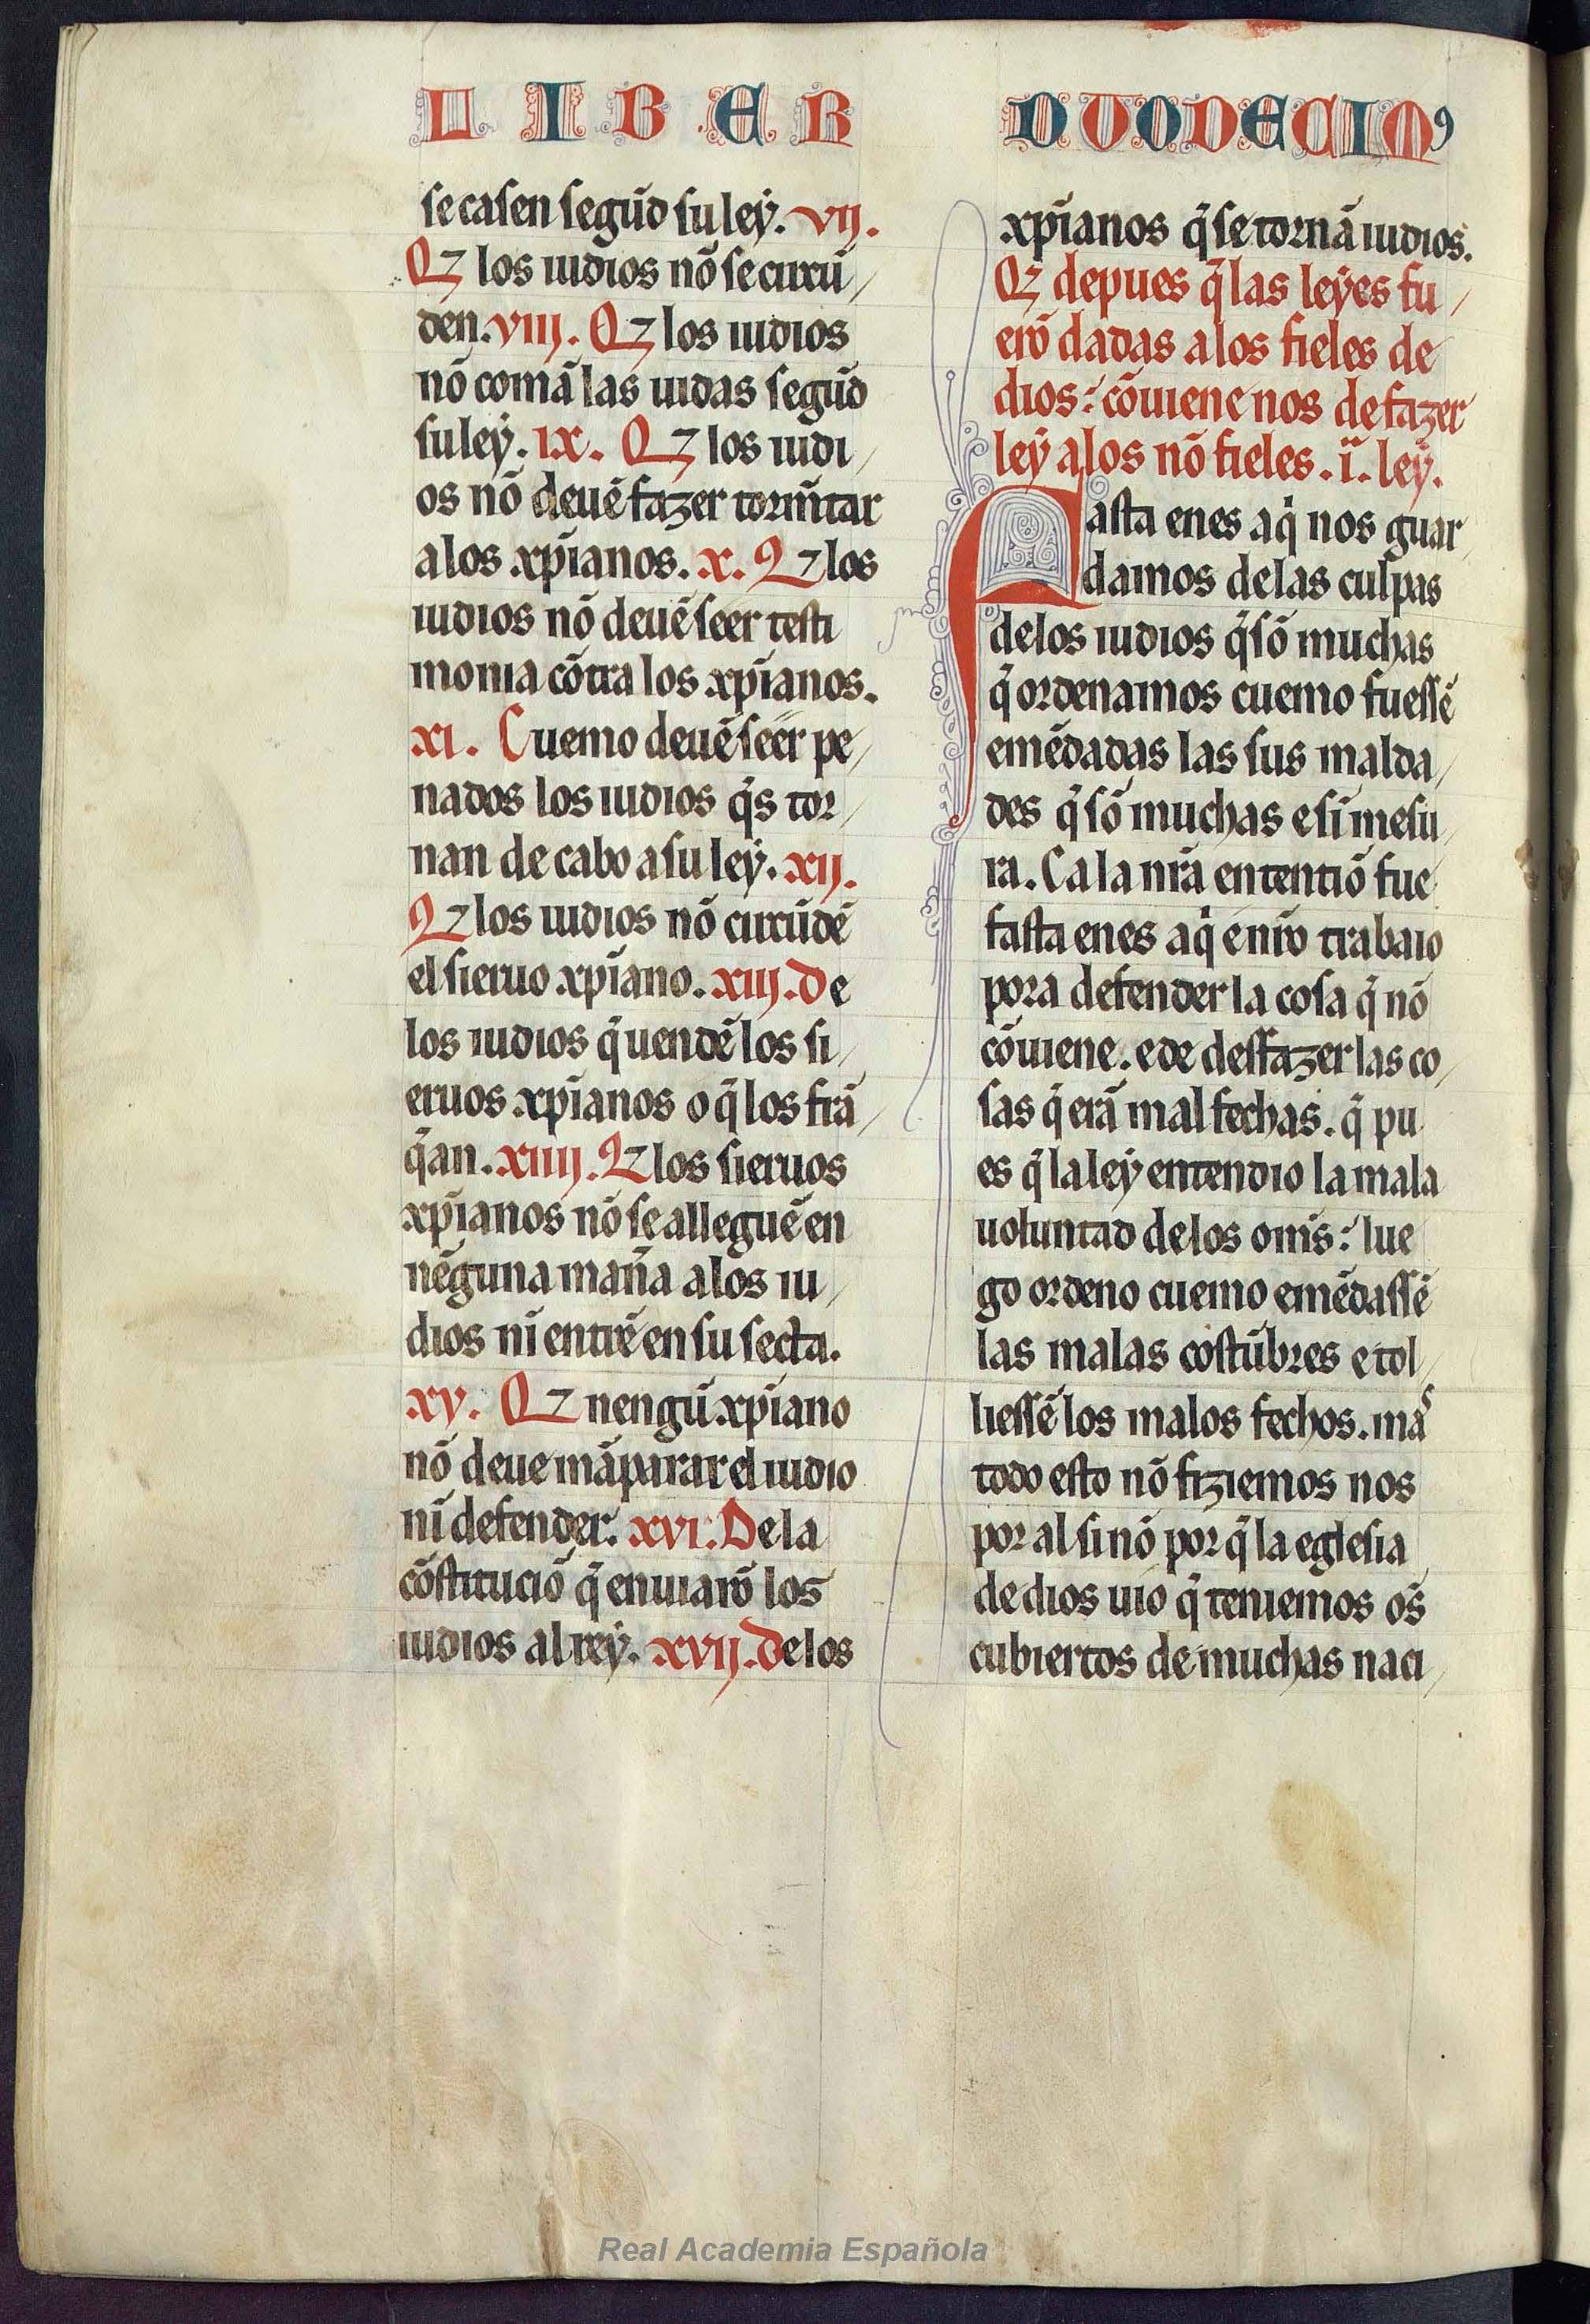 LIBER DUODECIMꝰ
se casen segũd su leẏ. vij.
Qꝫ los iudios nõ se circũ/
den. viij. Qꝫ los iudios
nõ comã las uidas segũd
su leẏ. ix. Qꝫ los iudi/
os nõ deuẽ fazer torm̃tar
alos xp̃ianos. x. Qꝫ los
iudios nõ deuẽ seer testi
monia cõtra los xp̃ianos.
xi. Cuemo deuẽ seer pe/
nados los iudios q̃s tor/
nan de cabo a su leẏ. xij.
Qꝫ los iudios nõ circũdẽ
el sieruo xp̃iano. xiij. De
los iudios q̃ uendẽ los si/
eruos xp̃ianos o q̃ los frã/
q̃an. xiiij. Qꝫ los sieruos
xp̃ianos nõ se alleguẽ en
nẽguna mañа alos iu/
dios nĩ entrẽ en su secta.
xv. Qꝫ nengũ xp̃iano
nõ deue mãparar el iudio
nĩ defender. xvi. De la
cõstituciõ q̃ enuiarõ los
iudios al rey. xvij. De los
xp̃ianos q̃ se tornã iudios.
Qꝫ depues q̃ las leẏes fu/
erõ dadas alos fieles de
dios: cõuiene nos de fazer
leẏ alos nõ fieles. i. leẏ.
Fasta en es aq̃ nos guar/
damos delas culpas
delos iudios q̃ sõ muchas
q̃ ordenamos cuemo fuessẽ
emẽdadas las sus malda/
des q̃ sõ muchas e sĩ mesu/
ra. Ca la nr̃a ententiõ fue
fasta en es aq̃ e nr̃o trabaio
pora defender la cosa q̃ nõ
cõuiene. e de desfazer las co/
sas q̃ erã mal fechas. q̃ pu
es q̃ la leẏ entendio la mala
uoluntad delos om̃s: lue
go ordeno cuemo emẽdassẽ
las malas costũbres e tol/
liessẽ los malos fechos. mas
todo esto nõ fiziemos nos
por al si nõ por q̃ la eglesia
de dios uio q̃ teniemos os̃
cubiertos de muchas naci/
Real Academia Española